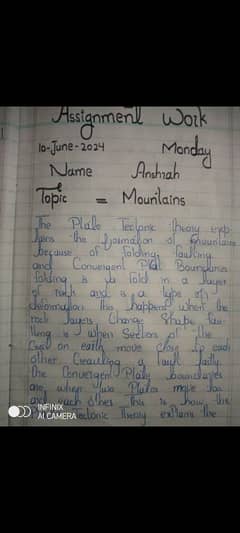 Assignment Work
10-June-2024 Monday
Name Anshrah
Topic = Mountains
The Plate Tectonic theory exp
lains the formation of mountains
because of folding, faulting
and Convergent Plat Boundaries
folding is a fold in a layer
of rock and is a type of
this happens when the
rock layers Change Shape fau
lting is when Section of the
Crust on earth move close to each
other Creating a fault lastly
the Convergent Plate boundaries
are when two Plates move tow
ards each other This is how the
Tectonic Theory explains the
INFINIX
AI CAMERA